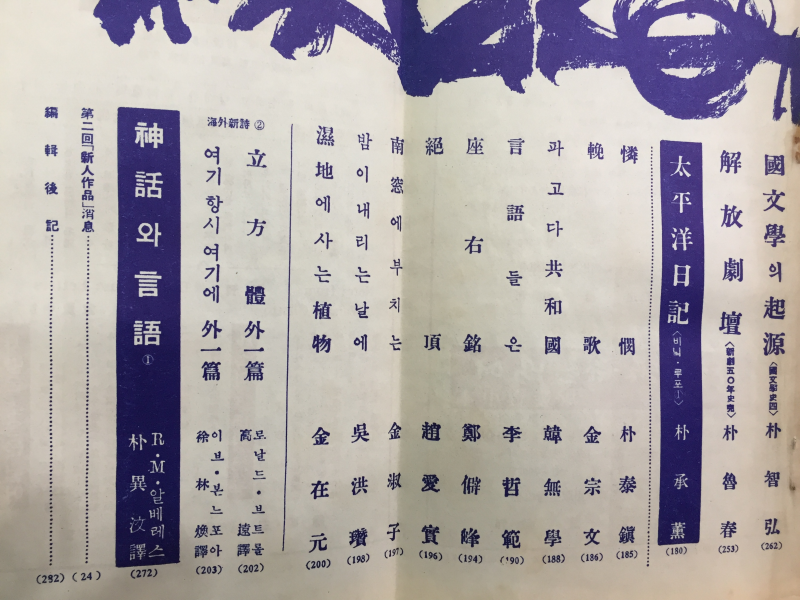 國文學의 起源〈國文學史四〉 朴智弘 (262)
解放劇壇〈新劇五〇年史完〉 朴魯春 (253)
太平洋日記 朴承薰 (180)
憐憫 朴泰鎭 (185)
輓歌 金宗文 (186)
파고다共和國 韓無學 (188)
言語들은 李哲範 (190)
座右銘 鄭僻峰 (194)
絕頂 趙愛實 (196)
南窓에 부치는 金淑子 (197)
밤이 내리는 날에 吳洪瓚 (198)
濕地에 사는 植物 金在元 (200)
海外新詩 ②
立方體 外一篇 로날드·보트롤 高遠譯 (202)
여기 항시 여기에 外一篇 이브·본느포아 徐林煥譯 (203)
神話와 言語 ① R·M·알베레스 朴異汶譯 (272)
第二回「新人作品」消息 (24)
編輯後記 (282)